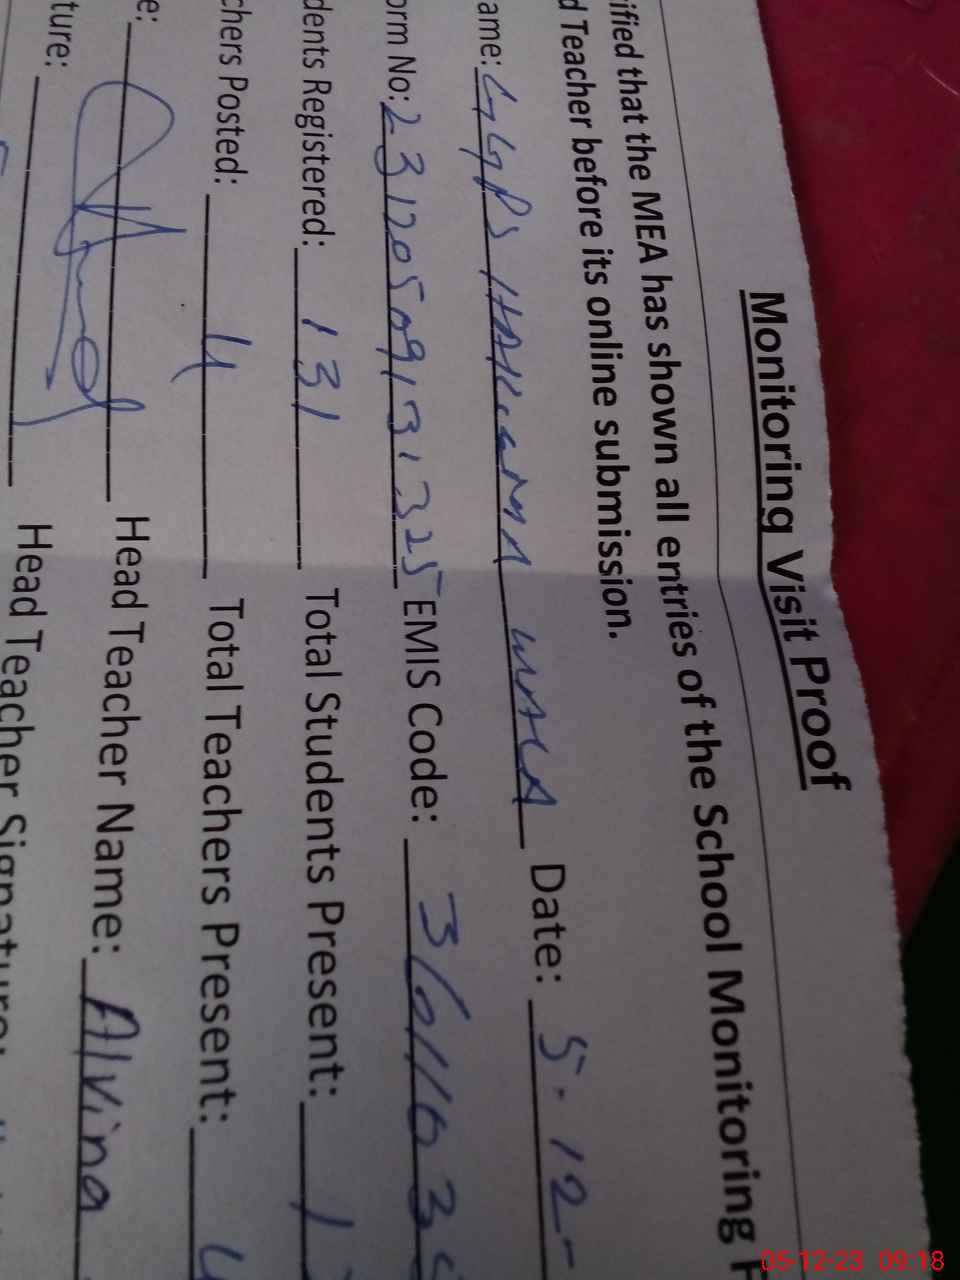 Monitoring Visit Proof
ified that the MEA has shown all entries of the School Monitoring F
d Teacher before its online submission.
ame: GGPS HAKLAMA WALA Date: 5-12-
orm No: 2312050913 1325 EMIS Code: 3611630
dents Registered: 131 Total Students Present: 1
chers Posted: 4 Total Teachers Present: 4
e: Head Teacher Name: Alvina
ture: Head Teacher Signature:
05-12-23 09:18